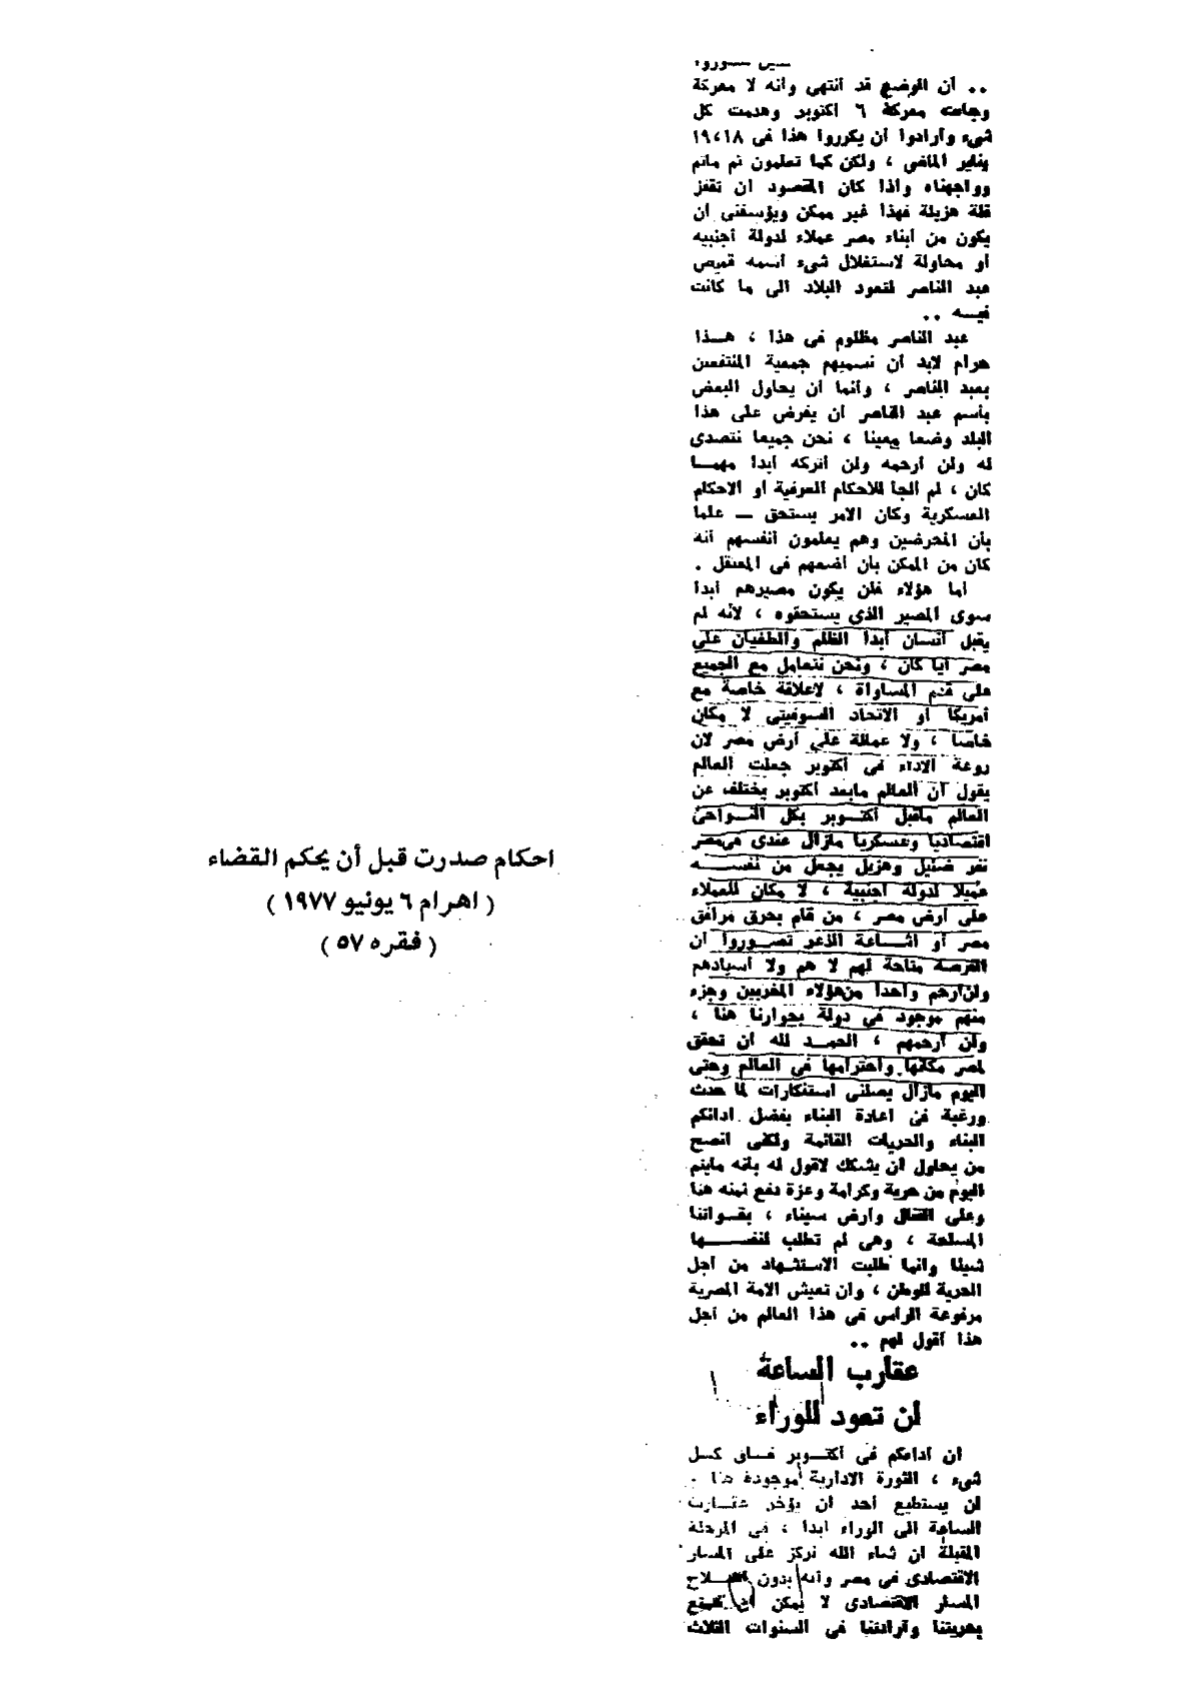 .. أن الوضع قد أنتهى وأنه لا معركة
وجاءت معركة ٦ أكتوبر وهدمت كل
شىء وأرادوا أن يكرروا هذا فى ١٩،١٨
يناير الماضى ، ولكن كما تعلمون تم ماتم
وواجهناه واذا كان المقصود ان تقفز
قلة هزيلة فهذا غير ممكن ويؤسفنى ان
يكون من أبناء مصر عملاء لدولة أجنبيه
أو محاولة لاستغلال شىء أسمه قميص
عبد الناصر لتعود البلاد الى ما كانت
فيـــه ..
عبد الناصر مظلوم فى هذا ، هـــذا
حرام لابد أن نسميهم جمعية المنتفعين
بعبد الناصر ، وأنما أن يحاول البعض
بأسم عبد الناصر ان يفرض على هذا
البلد وضعا معينا ، نحن جميعا نتصدى
له ولن أرحمه ولن أتركه أبدا مهمــا
كان ، لم ألجأ للأحكام العرفية او الاحكام
العسكرية وكان الامر يستحق ــ علما
بأن المحرضين وهم يعلمون أنفسهم أنه
كان من الممكن بأن أضعهم فى المعتقل .
أما هؤلاء فلن يكون مصيرهم أبدا
سوى المصير الذى يستحقوه ، لأنه لم
يقبل أنسان أبدا الظلم والطغيان على
مصر أيا كان ، ونحن نتعامل مع الجميع
على قدم المساواة ، لاعلاقة خاصة مع
أمريكا أو الاتحاد السوفيتى لا مكان
خاصا ، ولا عمالة على أرض مصر لان
روعة الاداء فى أكتوبر جعلت العالم
يقول أن العالم مابعد أكتوبر يختلف عن
العالم ماقبل أكتـــوبر بكل النــواحى
اقتصاديا وعسكريا مازال عندى فى مصر
نفر ضئيل وهزيل يجعل من نفســـه
عميلا لدولة أجنبية ، لا مكان للعملاء
على أرض مصر ، من قام بحرق مرافق
مصر أو اشـــاعة الذعر تصـــوروا أن
الفرصة متاحة لهم لا هم ولا أسيادهم
ولن أرحم واحدا من هؤلاء المخربين وجزء
منهم موجود فى دولة بجوارنا هنا ،
ولن أرحمهم ، الحمـــد لله أن تحقق
لمصر مكانها واحترامها فى العالم وحتى
اليوم مازال يصلنى استنكارات لما حدث
ورغبة فى اعادة البناء بفضل ادائكم
البناء والحريات القائمة ولكنى انصح
من يحاول أن يشكك لاقول له بأنه مايتم
اليوم من حرية وكرامة وعزة دفع ثمنه هنا
وعلى القنال وأرض سيناء ، بقـــواتنا
المسلحة ، وهى لم تطلب لنفســـها
شيئا وانما طلبت الاستشهاد من أجل
الحرية للوطن ، وان تعيش الامة المصرية
مرفوعة الرأس فى هذا العالم من أجل
هذا أقول لهم ..
عقارب الساعة
لن تعود للوراء
ان أداءكم فى أكتـــوبر فـــاق كـــل
شىء ، الثورة الادارية موجودة هنا .
لن يستطيع أحد أن يؤخر عقـــارب
الساعة الى الوراء أبدا ، فى المرحلة
المقبلة ان شاء الله نركز على المسار
الاقتصادى فى مصر وأنه بدون اصـــلاح
المسار الاقتصادى لا يمكن أن نتمتع
بحريتنا وارادتنا فى السنوات الثلاث
احكام صدرت قبل أن يحكم القضاء
( اهرام ٦ يونيو ١٩٧٧ )
( فقره ٥٧ )